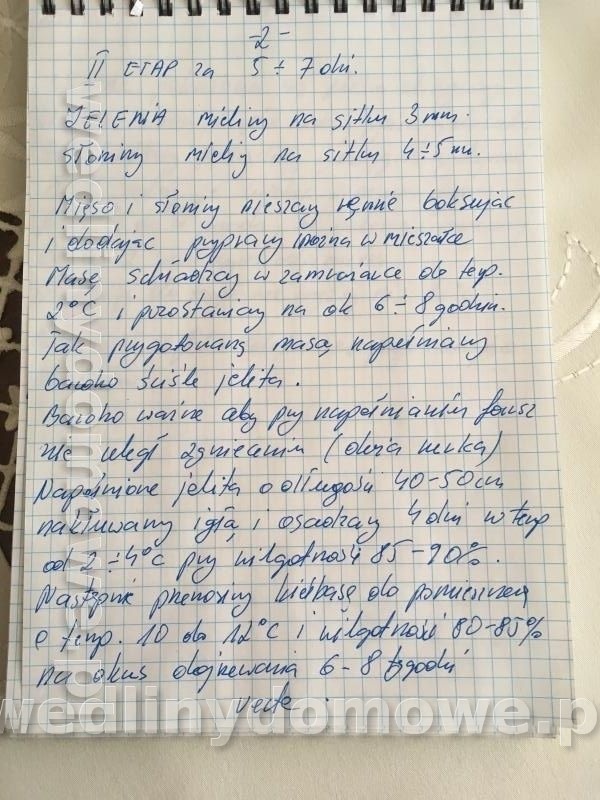 -2-
II ETAP za 5÷7 dni.
JELENIA mielimy na sitku 3mm.
słoniny mielimy na sitku 4÷5mm.
Mięso i słoniny mieszamy ręcznie boksując
i dodając przyprawy można w mieszałce
Masę schładzamy w zamrażarce do temp.
2°C i pozostawiamy na ok 6÷8 godzin.
Tak przygotowaną masą napełniamy
bardzo ściśle jelita.
Bardzo ważne aby przy napełnianiu farsz
nie uległ zgnieceniu (duża lufka)
Napełnione jelita o długości 40-50cm
nakłuwamy igłą i osadzamy 4 dni w temp
od 2÷4°C przy wilgotności 85-90%.
Następnie przenosimy kiełbasę do pomieszczeń
o temp. 10 do 12°C i wilgotności 80-85%
na okres dojrzewania 6-8 tygodni
wedlinydomowe.p